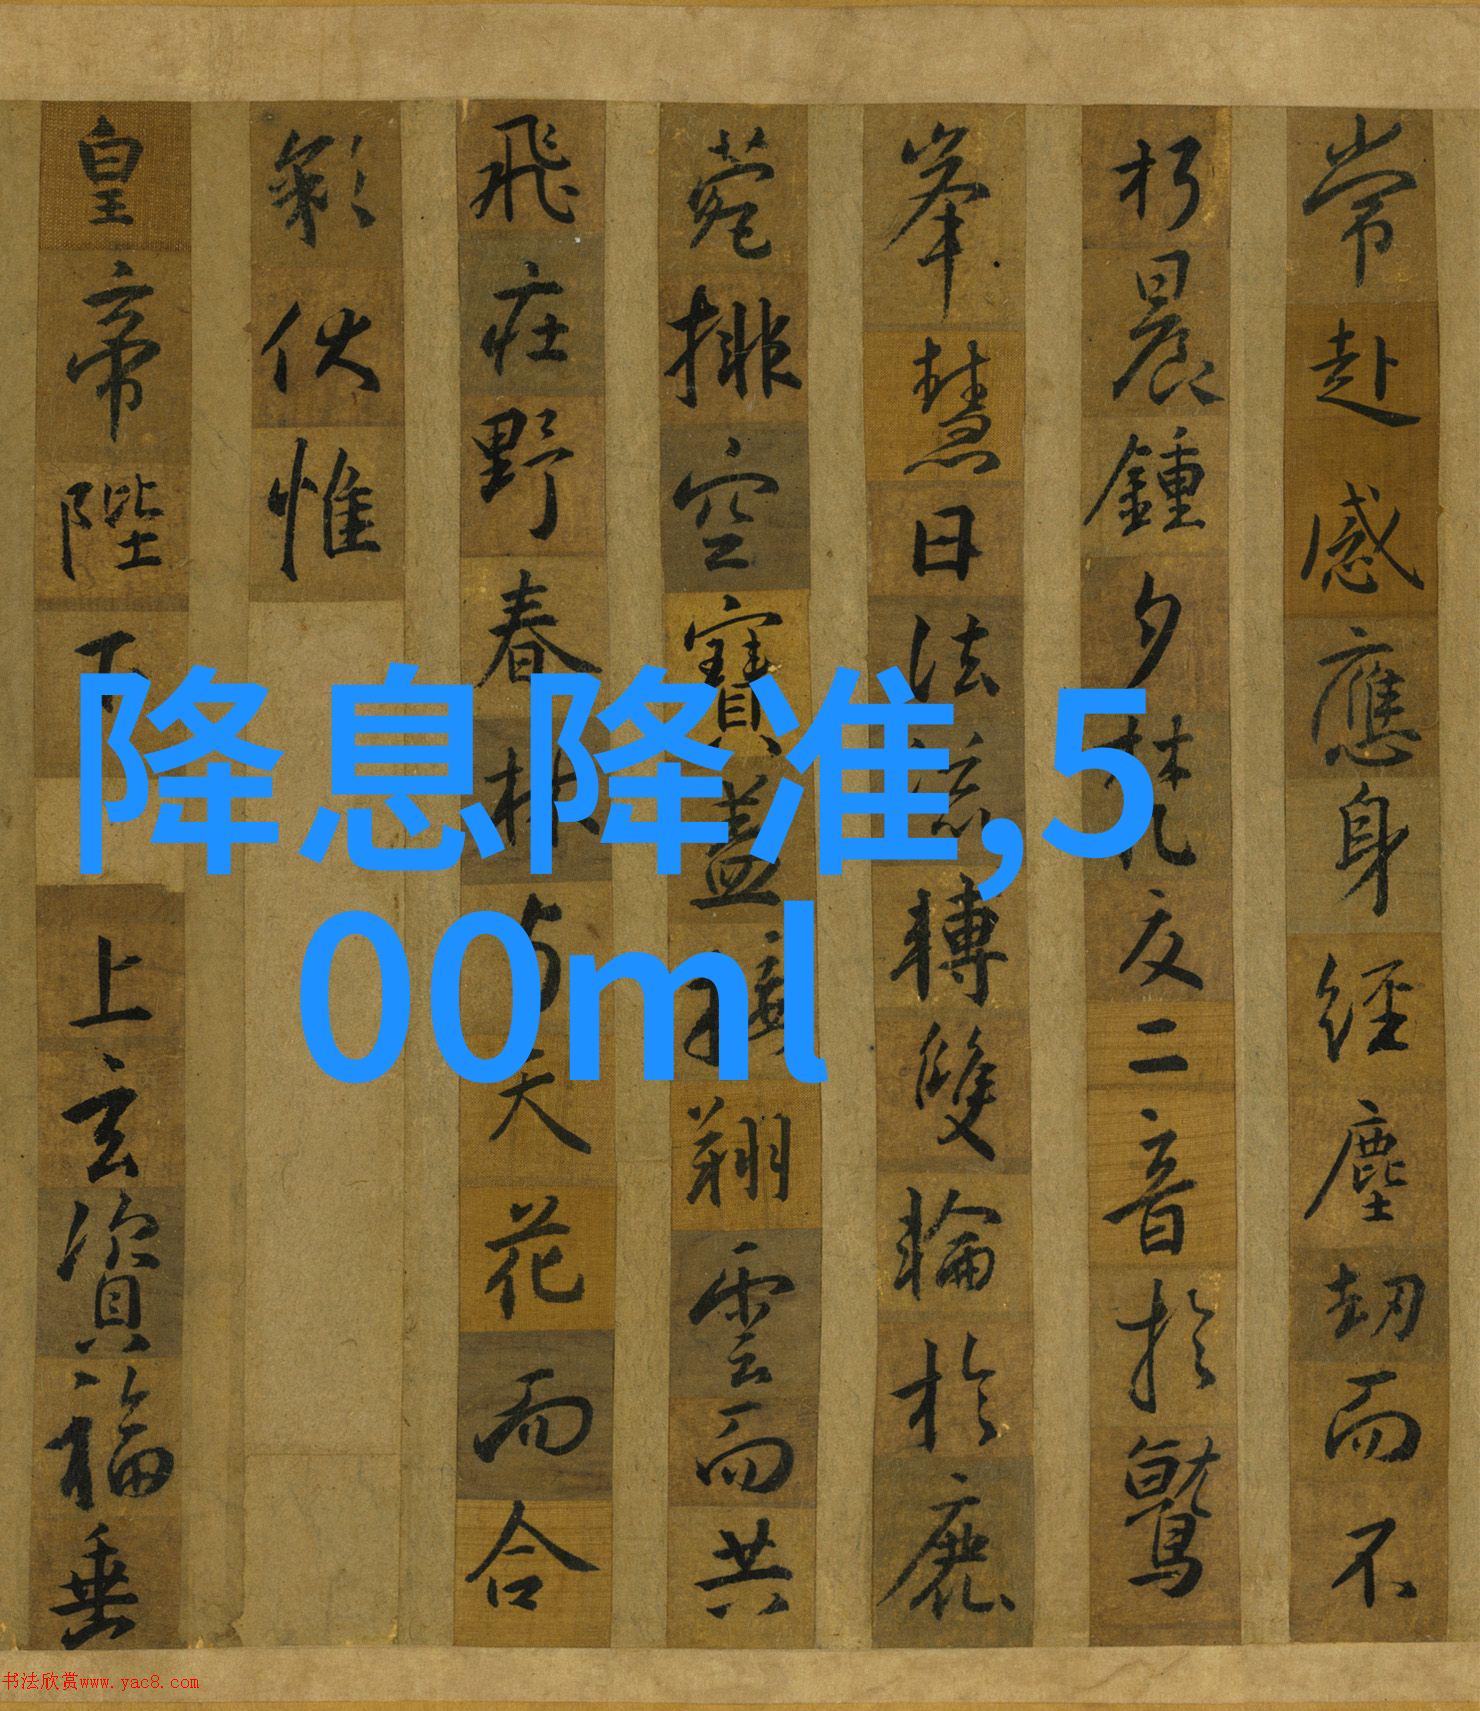 常赴感應身經塵劫而不
朽晨鍾夕梵交二音於鷲
峯慧日法流轉雙輪於鹿
菀排空寶蓋接翔雲而共
飛莊野春林与天花而合
彩伏惟
皇帝陛下上玄資福垂
降息降准,5
00ml
书法欣赏www.yac8.com